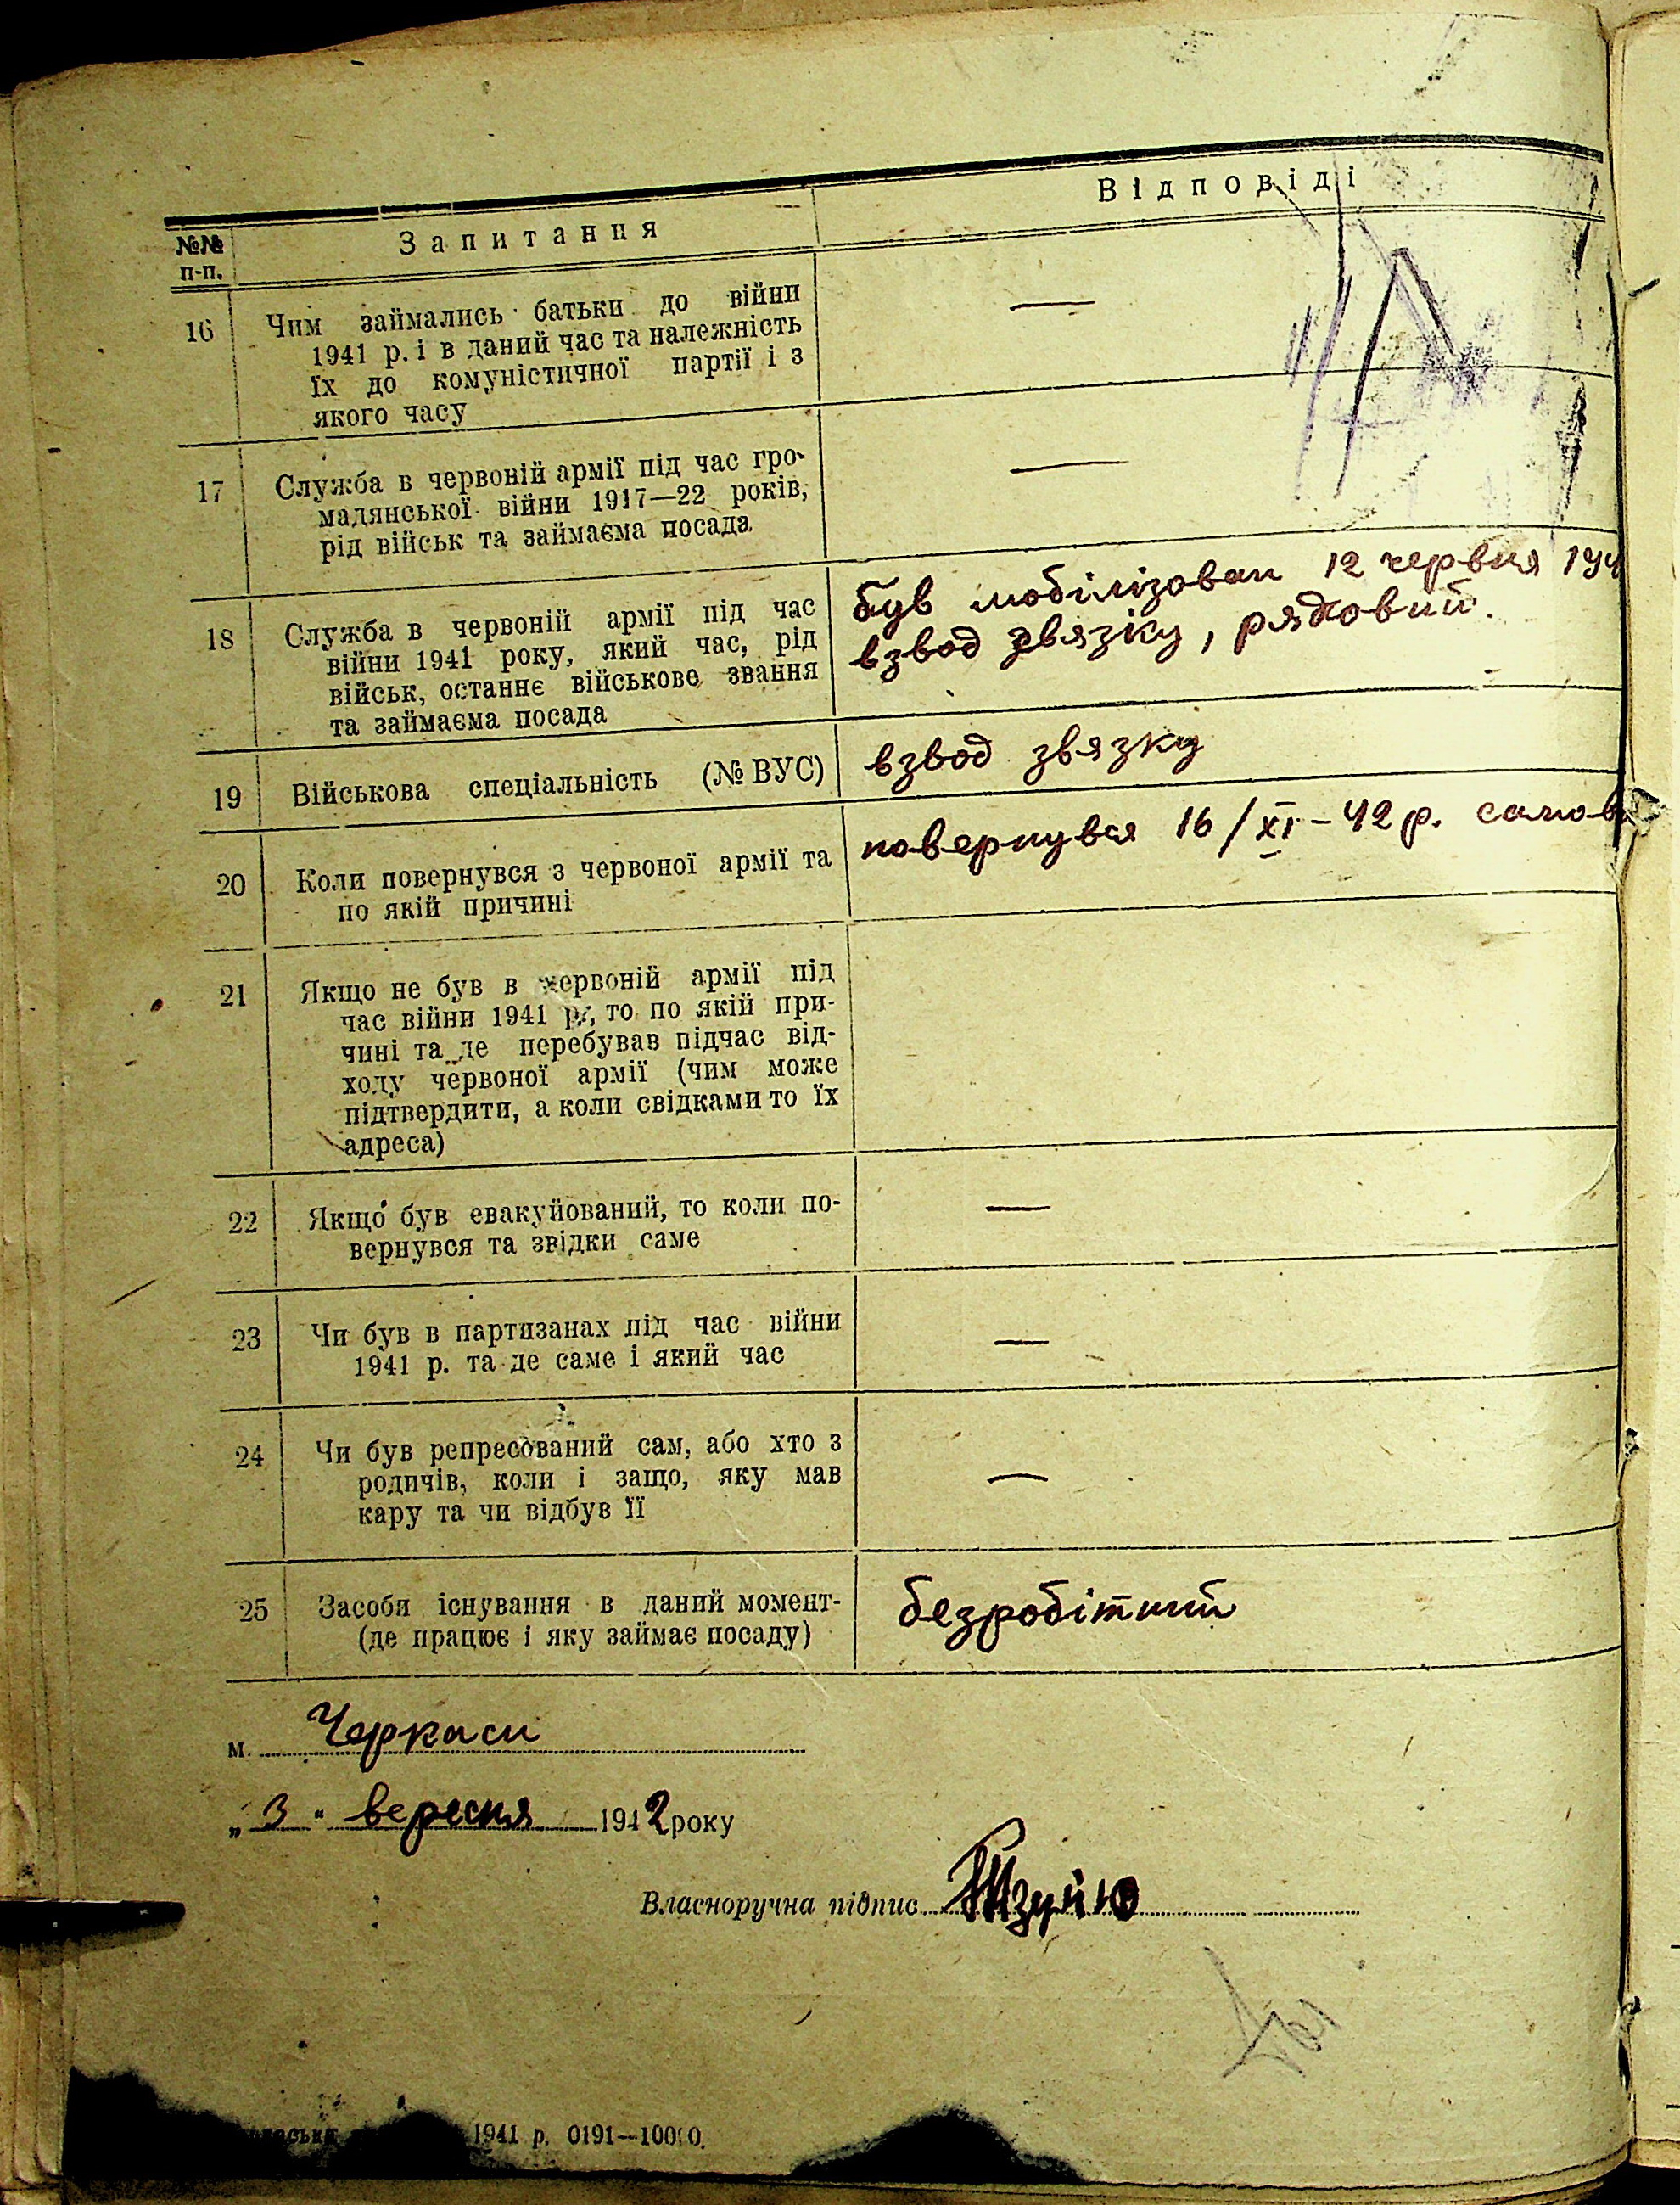 №№ п-п.
Запитання
Відповіді
16
Чим займались батьки до війни
1941 р. і в даний час та належність
їх до комуністичної партії і з
якого часу
—
17
Служба в червоній армії під час гро-
мадянської війни 1917—22 років,
рід військ та займаєма посада
—
18
Служба в червоній армії під час
війни 1941 року, який час, рід
військ, останнє військове звання
та займаєма посада
був мобілізован 12 червня 194
взвод звязку, рядовий.
19
Військова спеціальність (№ ВУС)
взвод звязку
20
Коли повернувся з червоної армії та
по якій причині
повернувся 16/XI-42 р. самов
21
Якщо не був в червоній армії під
час війни 1941 р., то по якій при-
чині та де перебував підчас від-
ходу червоної армії (чим може
підтвердити, а коли свідками то їх
адреса)
22
Якщо був евакуйований, то коли по-
вернувся та звідки саме
—
23
Чи був в партизанах під час війни
1941 р. та де саме і який час
—
24
Чи був репресований сам, або хто з
родичів, коли і защо, яку мав
кару та чи відбув її
—
25
Засоби існування в даний момент-
(де працює і яку займає посаду)
безробітний
м. Черкаси
„3" вересня 1942 року
Власноручна підпис
1941 р. 0191—10000.